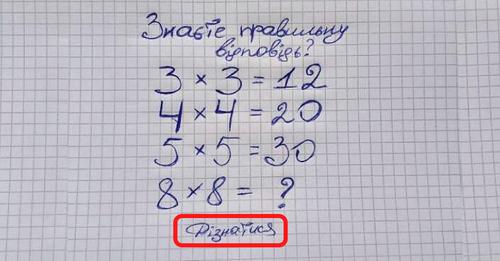 Знаєте правильну
відповідь?
3 × 3 = 12
4 × 4 = 20
5 × 5 = 30
8 × 8 = ?
Дізнатися